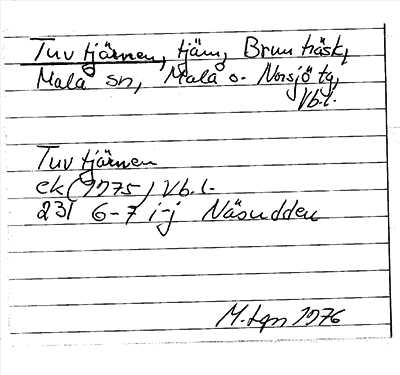 Tuvtjärnen, tjärn, Brunträsk,
Malå sn, Malå o. Norsjö tg,
Vb.l.
Tuvtjärnen
ek (1975) Vb.l.
23I 6-7 i-j Näsudden
M-tqn 1976